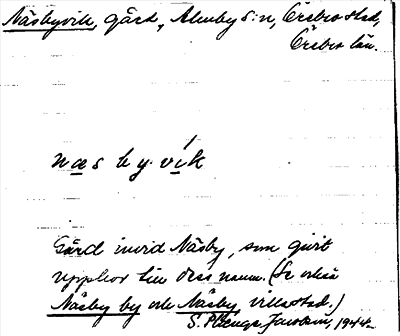 Näsbyvik, gård, Almby s:n, Örebro stad,
Örebro län.
næsbyvík
Gård invid Näsby, som givit
upphov till dess namn. (Se också
Näsby by och Näsby, villastad.)
S. 1944.